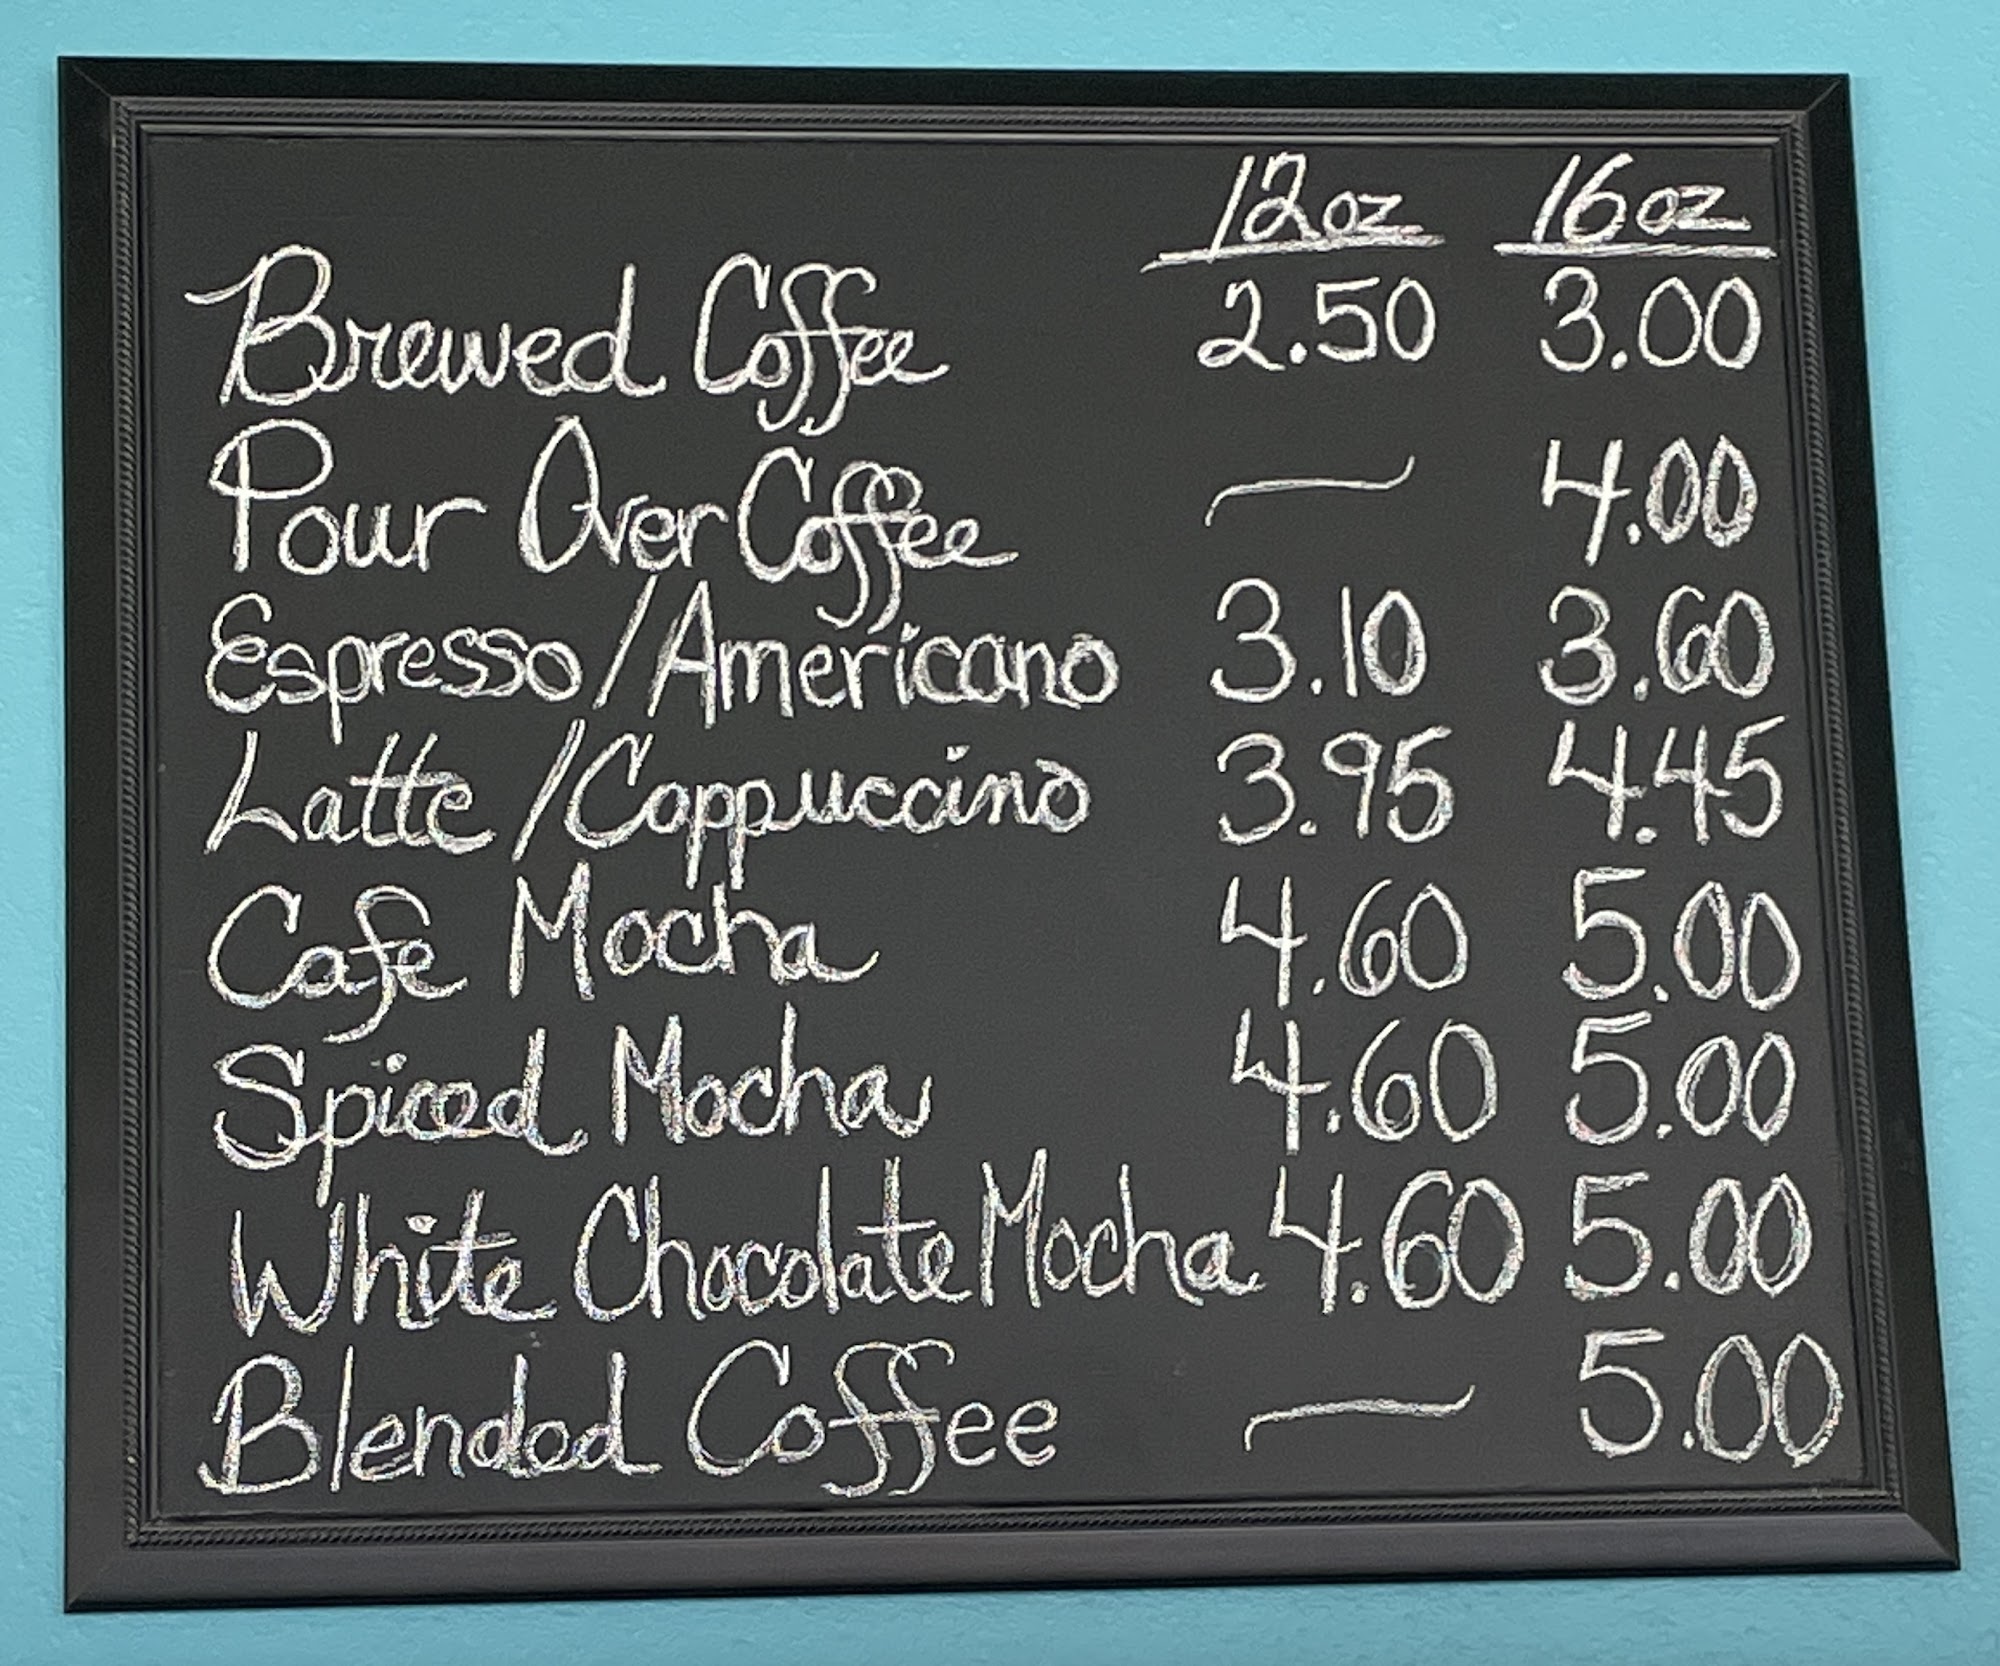 12oz 16oz
Brewed Coffee 2.50 3.00
Pour Over Coffee — 4.00
Espresso/Americano 3.10 3.60
Latte/Cappuccino 3.95 4.45
Cafe Mocha 4.60 5.00
Spiced Mocha 4.60 5.00
White Chocolate Mocha 4.60 5.00
Blended Coffee — 5.00